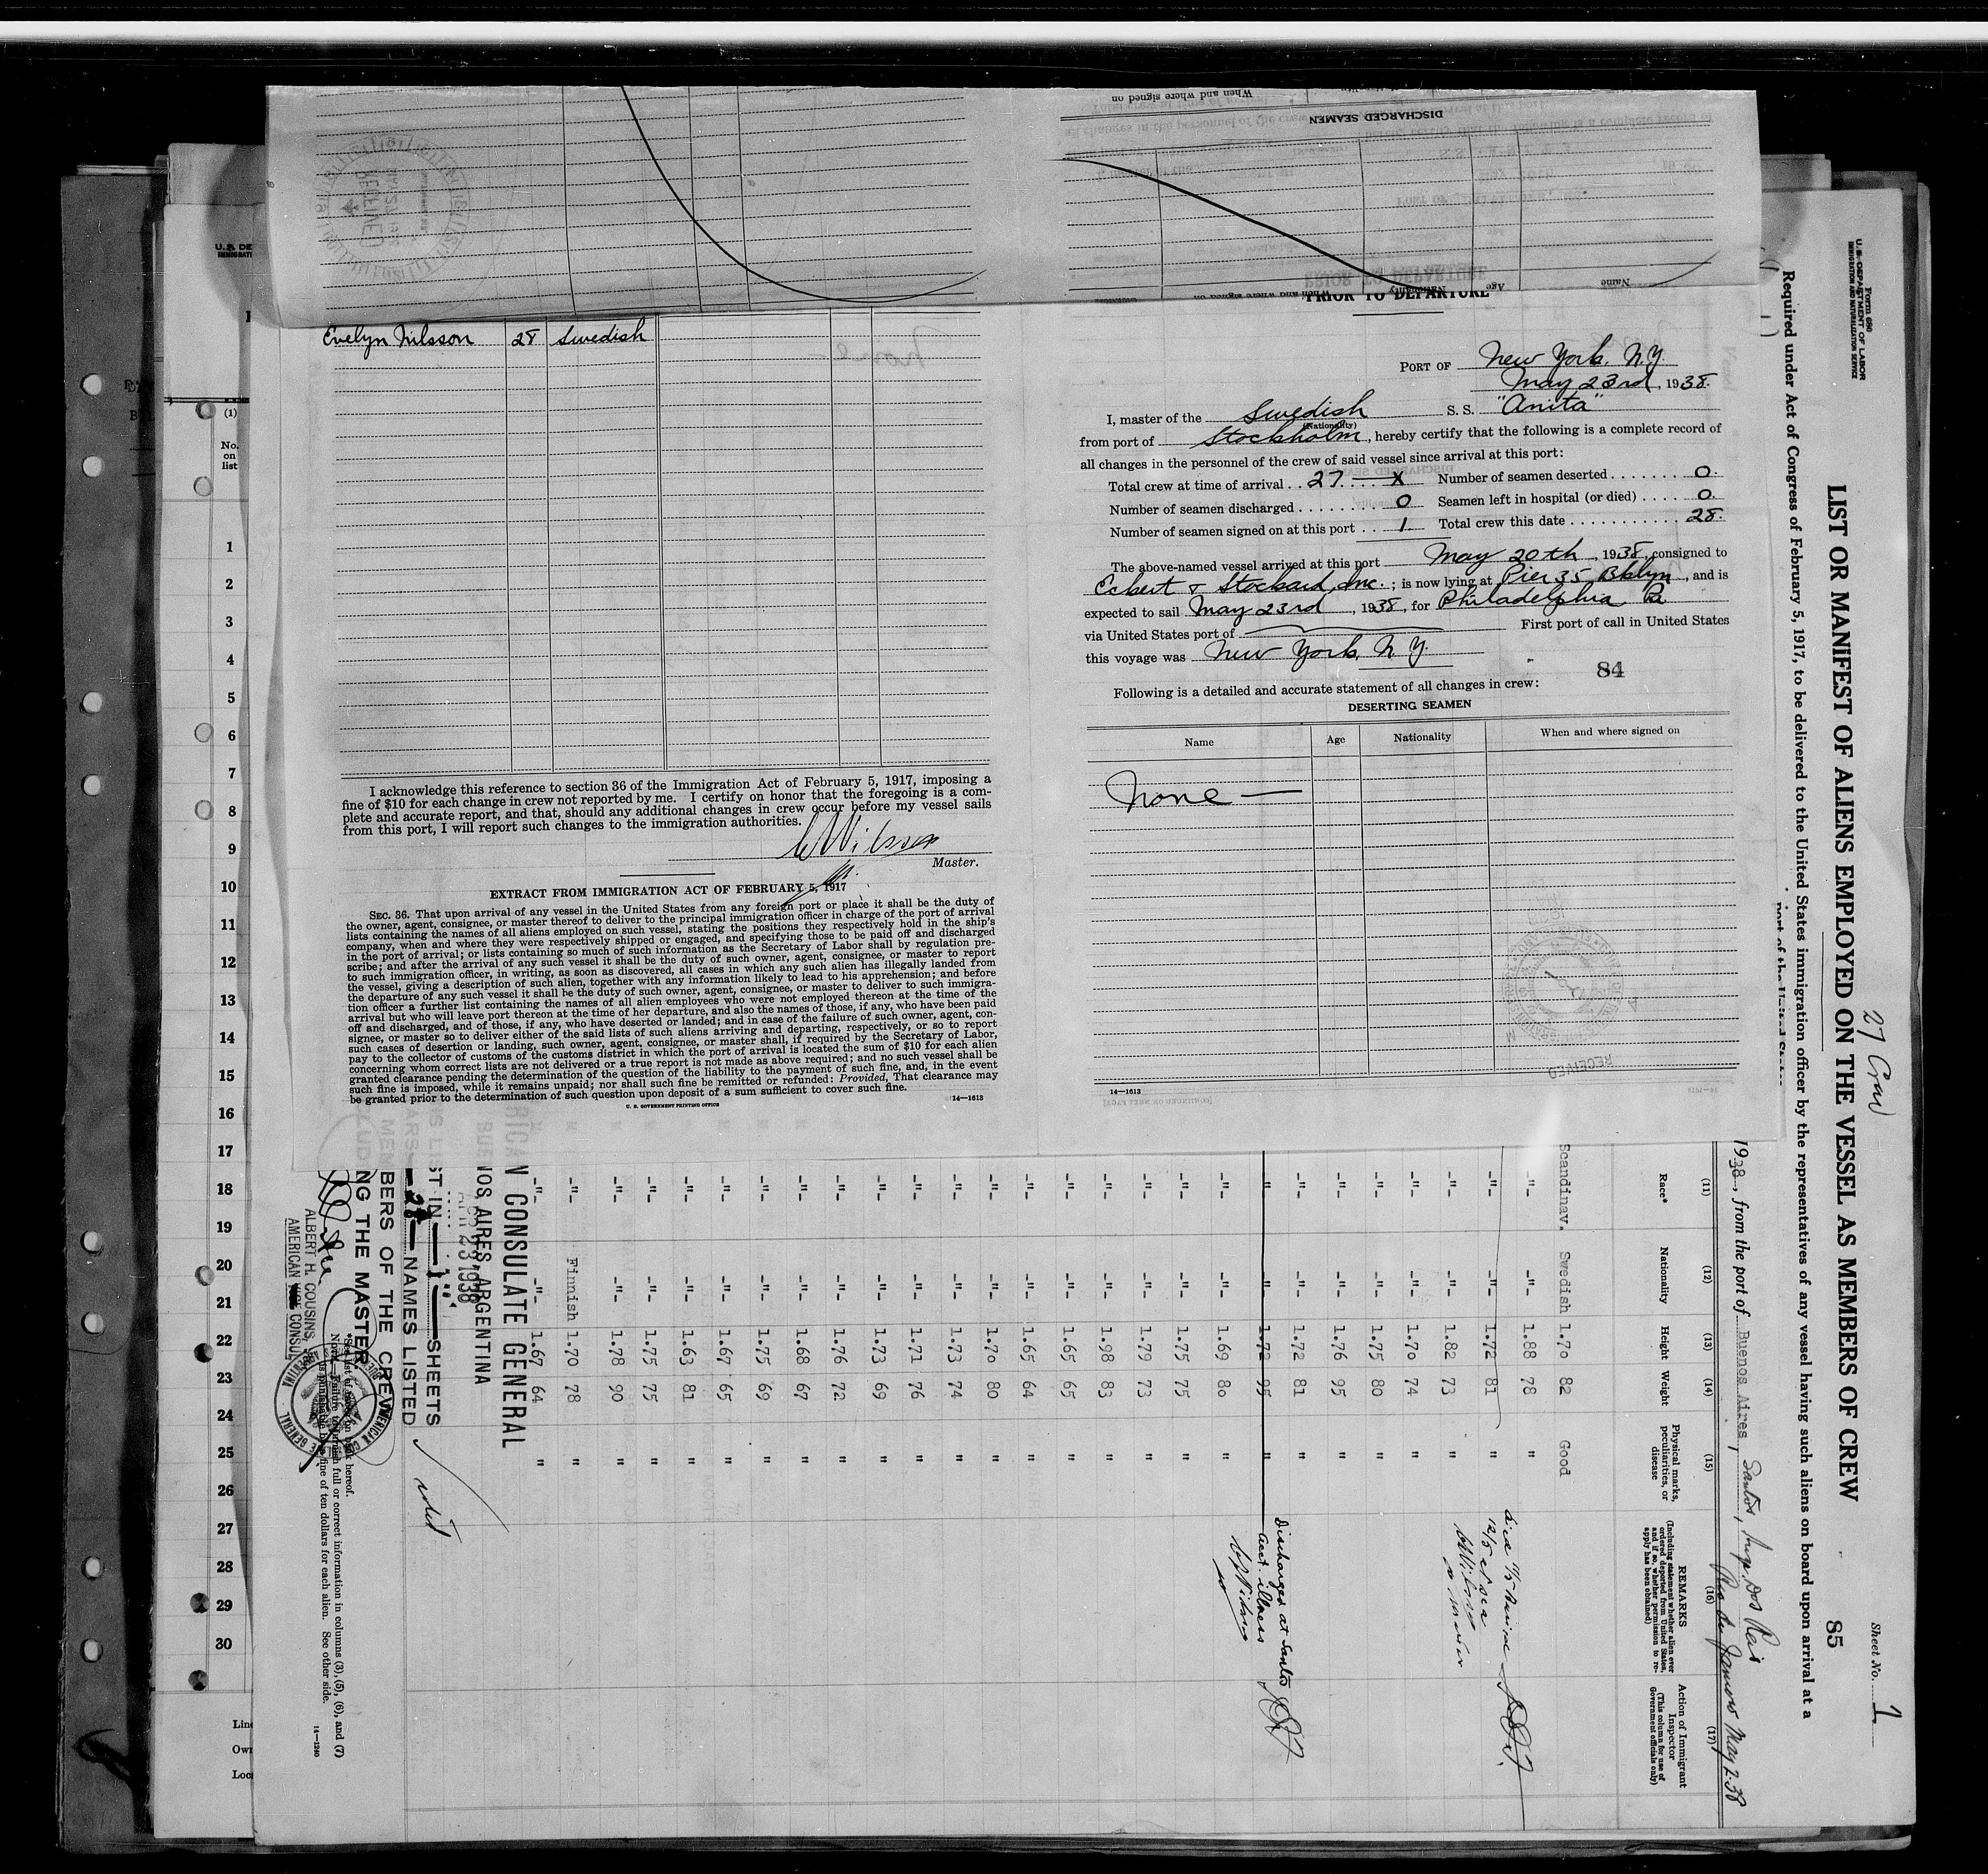 When and where signed on
DISCHARGED SEAMEN
Name
Age
Nationality
When and where signed on
PRIOR TO DEPARTURE
Evelyn Nilsson 28 Swedish
I acknowledge this reference to section 36 of the Immigration Act of February 5, 1917, imposing a
fine of $10 for each change in crew not reported by me. I certify on honor that the foregoing is a com-
plete and accurate report, and that, should any additional changes in crew occur before my vessel sails
from this port, I will report such changes to the immigration authorities.
Master.
EXTRACT FROM IMMIGRATION ACT OF FEBRUARY 5, 1917
SEC. 36. That upon arrival of any vessel in the United States from any foreign port or place it shall be the duty of
the owner, agent, consignee, or master thereof to deliver to the principal immigration officer in charge of the port of arrival
lists containing the names of all aliens employed on such vessel, stating the positions they respectively hold in the ship's
company, when and where they were respectively shipped or engaged, and specifying those to be paid off and discharged
in the port of arrival; or lists containing so much of such information as the Secretary of Labor shall by regulation pre-
scribe; and after the arrival of any such vessel it shall be the duty of such owner, agent, consignee, or master to report
to such immigration officer, in writing, as soon as discovered, all cases in which any such alien has illegally landed from
the vessel, giving a description of such alien, together with any information likely to lead to his apprehension; and before
the departure of any such vessel it shall be the duty of such owner, agent, consignee, or master to deliver to such immigra-
tion officer a further list containing the names of all alien employees who were not employed thereon at the time of the
arrival but who will leave port thereon at the time of her departure, and also the names of those, if any, who have been paid
off and discharged, and of those, if any, who have deserted or landed; and in case of the failure of such owner, agent, con-
signee, or master so to deliver either of the said lists of such aliens arriving and departing, respectively, or so to report
such cases of desertion or landing, such owner, agent, consignee, or master shall, if required by the Secretary of Labor,
pay to the collector of customs of the customs district in which the port of arrival is located the sum of $10 for each alien
concerning whom correct lists are not delivered or a true report is not made as above required; and no such vessel shall be
granted clearance pending the determination of the question of the liability to the payment of such fine, and, in the event
such fine is imposed, while it remains unpaid; nor shall such fine be remitted or refunded: Provided, That clearance may
be granted prior to the determination of such question upon deposit of a sum sufficient to cover such fine.
U. S. GOVERNMENT PRINTING OFFICE
14—1613
PORT OF New York, N.Y.
May 23rd, 1938.
I, master of the Swedish S. S. "Anita"
(Nationality)
from port of Stockholm, hereby certify that the following is a complete record of
all changes in the personnel of the crew of said vessel since arrival at this port:
Total crew at time of arrival . . 27 — x Number of seamen deserted . . . . . . . 0.
Number of seamen discharged . . . . . . . . 0 Seamen left in hospital (or died) . . . . 0.
Number of seamen signed on at this port . . 1 Total crew this date . . . . . . . . . . . 28.
The above-named vessel arrived at this port May 20th, 1938, consigned to
Eckert & Stockard, Inc.; is now lying at Pier 35, Bklyn, and is
expected to sail May 23rd, 1938, for Philadelphia Pa
via United States port of First port of call in United States
this voyage was New York, N.Y.
84
Following is a detailed and accurate statement of all changes in crew:
DESERTING SEAMEN
Name Age Nationality When and where signed on
None —
RECEIVED
14—1613
Form 680
U. S. DEPARTMENT OF LABOR
IMMIGRATION AND NATURALIZATION SERVICE
Sheet No. 1
27 Crew
LIST OR MANIFEST OF ALIENS EMPLOYED ON THE VESSEL AS MEMBERS OF CREW
85
Required under Act of Congress of February 5, 1917, to be delivered to the United States immigration officer by the representatives of any vessel having such aliens on board upon arrival at a
port of the United States
1938, from the port of Buenos Aires, Santos,
Rio de Janeiro May 2-38
(11) (12) (13) (14) (15) (16) (17)
Race* Nationality Height Weight Physical marks, peculiarities, or disease
REMARKS
(Including statement whether alien ever ordered deported from United States, and if so, whether permission to reapply has been obtained)
Action of Immigrant Inspector
(This column for use of Government officials only)
Scandinav. Swedish 1.70 82 Good
-"- -"- 1.88 78 "
-"- -"- 1.72 81 "
-"- -"- 1.82 73 "
-"- -"- 1.70 74 "
-"- -"- 1.75 80 "
-"- -"- 1.76 95 "
-"- -"- 1.72 81 "
-"- -"- 1.72 95 " Discharged at Santos acct. illness
-"- -"- 1.69 80 "
-"- -"- 1.75 75 "
-"- -"- 1.79 73 "
-"- -"- 1.98 83 "
-"- -"- 1.65 65 "
-"- -"- 1.65 64 "
-"- -"- 1.70 80 "
-"- -"- 1.73 74 "
-"- -"- 1.71 76 "
-"- -"- 1.73 69 "
-"- -"- 1.76 72 "
-"- -"- 1.68 67 "
-"- -"- 1.75 69 "
-"- -"- 1.67 65 "
-"- -"- 1.63 81 "
-"- -"- 1.75 75 "
-"- -"- 1.78 90 "
-"- Finnish 1.70 78 "
-"- -"- 1.67 64 "
N CONSULATE GENERAL
NOS AIRES, ARGENTINA
APR 23 1938
ST IN 1 SHEETS
28 NAMES LISTED
BERS OF THE CREW
NG THE MASTER
ALBERT H. COUSINS, JR.
AMERICAN VICE CONSUL
*See list of races on back hereof.
NOTE.—Failure to furnish full or correct information in columns (3), (5), (6), and (7)
is punishable by a fine of ten dollars for each alien. See other side.
14—1240
U. S. DE
IMMIGRAT
(1)
No.
on
list
1
2
3
4
5
6
7
8
9
10
11
12
13
14
15
16
17
18
19
20
21
22
23
24
25
26
27
28
29
30
Line
Own
Loca